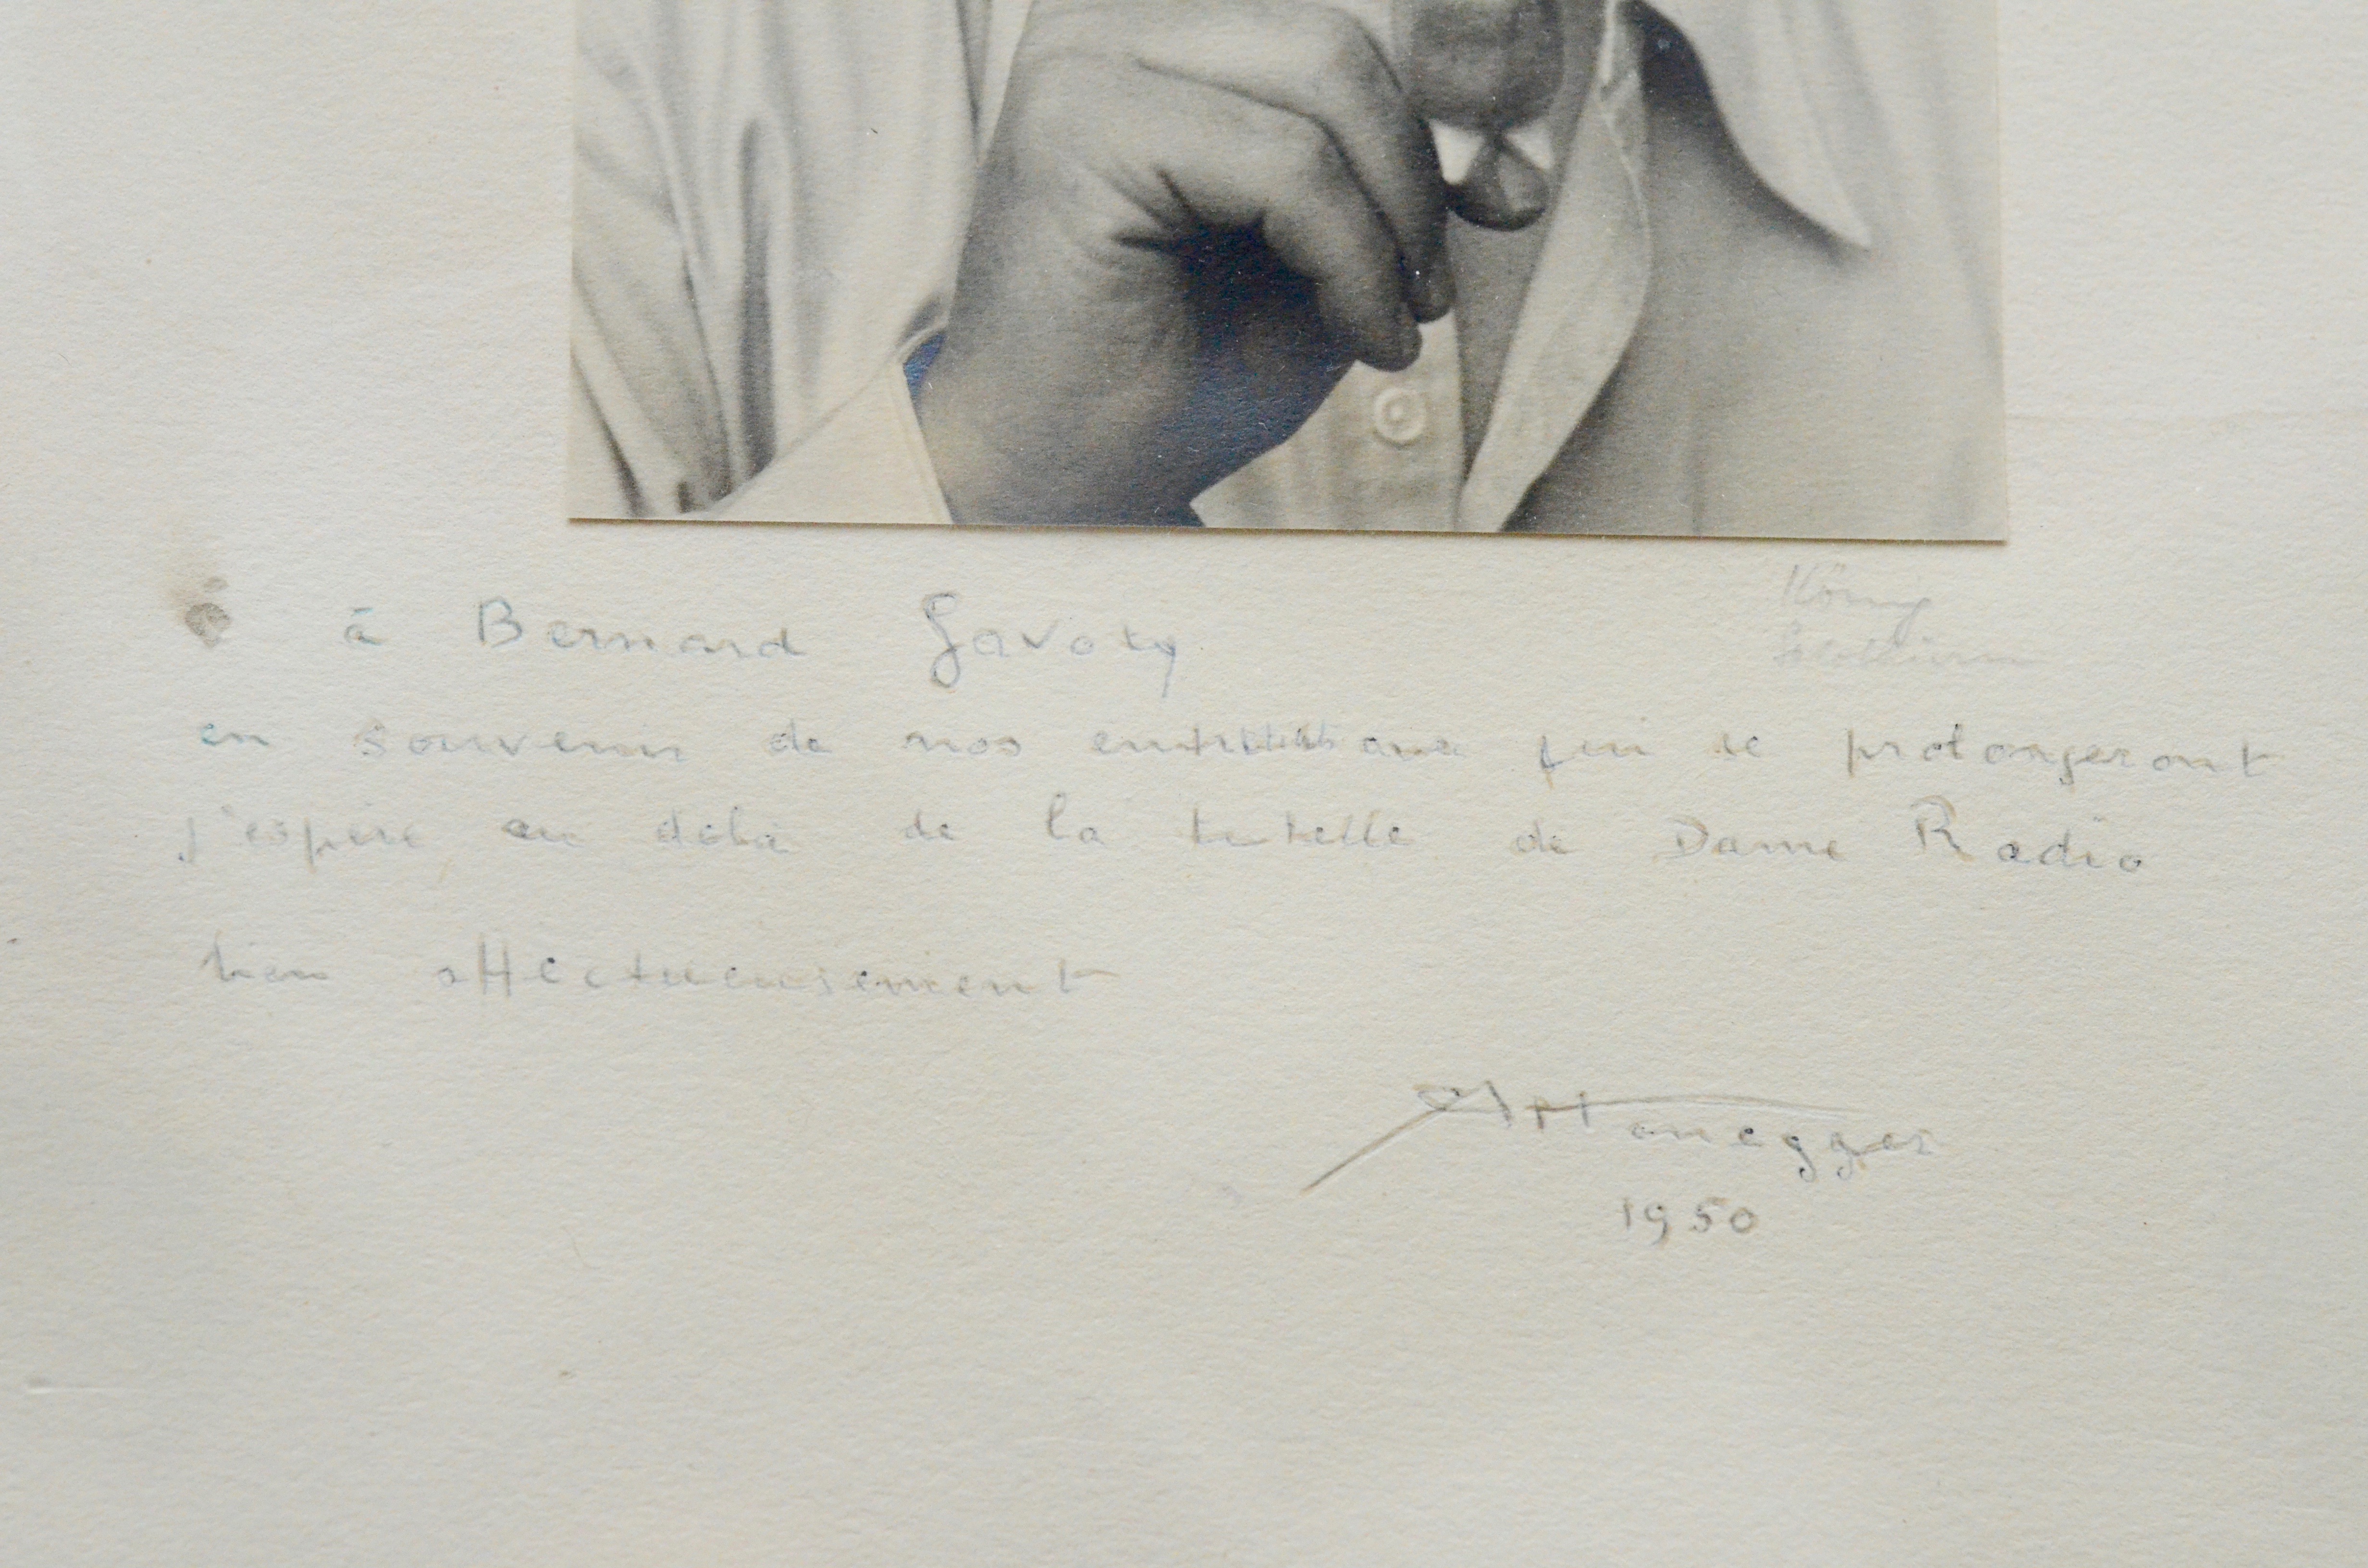 König
Solothurn
à Bernard Gavoty
en souvenir de nos entretiens qui se prolongeront
j'espère, au delà de la tutelle de Dame Radio
bien affectueusement
A Honegger
1950